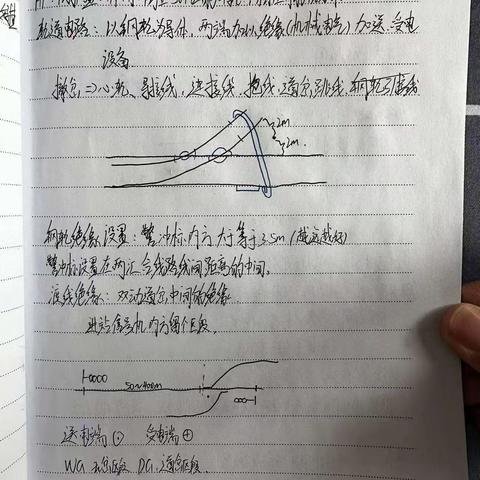 轨道电路:以钢轨为导体,两端加以绝缘(机械电气)加送、受电
设备
撤岔⇒心轨、导接线,连接线,抱线,道岔跳线,钢轨引接线
2m
2m
钢轨绝缘设置:警冲标内方大于等于3.5m(越远越好)
警冲标设置在两汇合线路线间距离的中间。
渡线绝缘:双动道岔中间的绝缘
进站信号机内方留个区段。
50~400m
送电端⊖ 受电端⊕
WG 无岔区段 DG 道岔区段